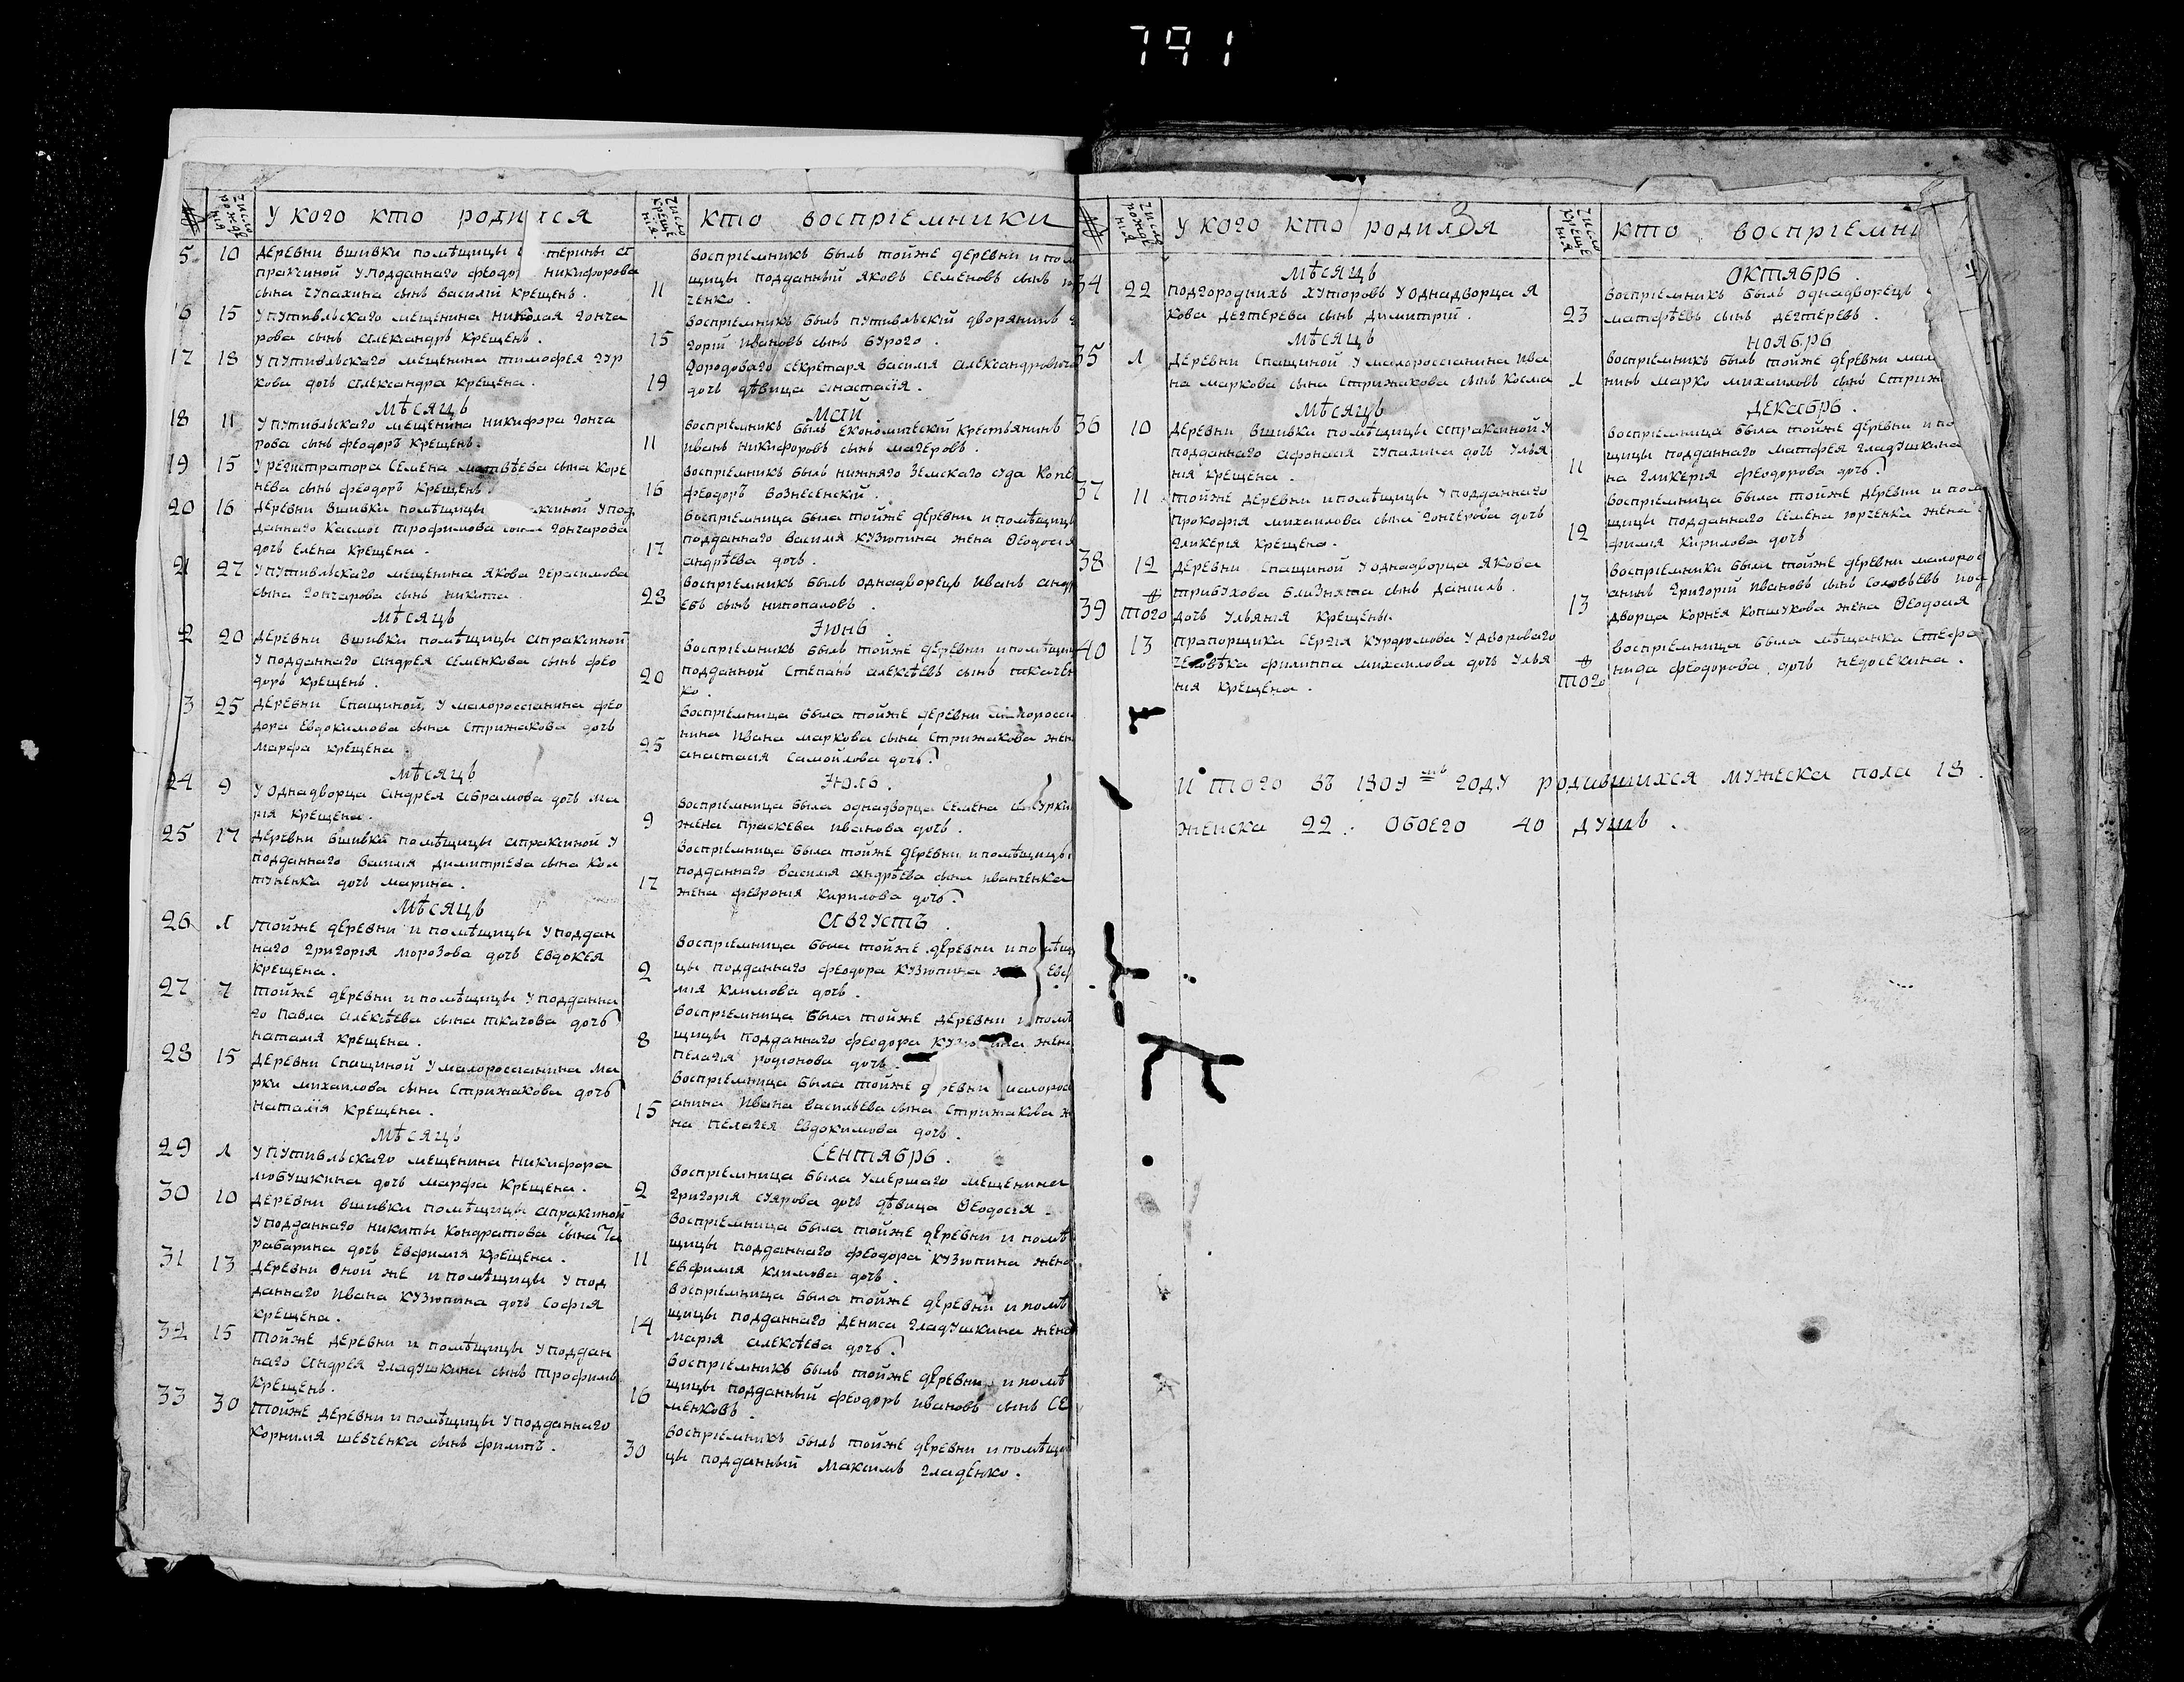 791
№
число рожде нія
У кого кто родился
число креще нія.
кто воспріемники
5
10
деревни Вшивки помѣщицы терины Ст
праксиной У подданнаго Феодо Никифорова
сына Чупахина сынъ Василій Крещенъ.
11
воспріемникъ былъ тойже деревни и пом
щицы подданный Яковъ Семеновъ сынъ
ченко.
16
15
У Путивльскаго мещенина Николая Гонча
рова сынъ Александръ Крещенъ.
15
воспріемникъ былъ Путивльскій дворянинъ
горій Ивановъ сынъ Бурого.
17
18
У Путивльскаго мещенина Тимофея Гур
кова дочь Александра Крещена.
19
Городоваго секретаря Василія Александровича
дочь дѣвица Анастасія.
Мѣсяцъ
Маій.
18
11
У Путивльскаго мещенина Никифора Гонча
рова сынъ Феодоръ Крещенъ.
11
воспріемникъ былъ Економическій Крестьянинъ
Иванъ Никифоровъ сынъ Магеровъ.
19
15
У регистратора Семена Матвѣева сына Коре
нева сынъ Феодоръ Крещенъ.
16
воспріемникъ былъ нижняго земскаго суда Копе
Феодоръ Вознесенскій.
20
16
деревни Вшивки помѣщицы ксиной У под
даннаго Трофимова Гончарова
дочь Елена Крещена.
17
воспріемница была тойже деревни и помѣщицы
подданнаго Василія Кузюпина жена Ѳеодосія
Андрѣева дочь.
21
27
У Путивльскаго мещенина Якова Герасимова
сына Гончарова сынъ Никита.
28
воспріемникъ былъ однадворецъ Иванъ Анд
евъ сынъ Нипопаловъ.
Мѣсяцъ
Іюнь.
2
20
деревни Вшивки помѣщицы Апраксиной
У подданнаго Андрея Семенкова сынъ Фео
доръ Крещенъ.
20
воспріемникъ былъ тойже деревни и помѣщи
подданной Степанъ Алексѣевъ сынъ Ткачен
ко.
3
25
деревни Спащиной, У малороссіанина Фео
дора Евдокимова сына Стрижакова дочь
Марфа Крещена
25
воспріемница была тойже деревни малоросси
нина Ивана Маркова сына Стрижакова жен
Анастасія Самойлова дочь.
Мѣсяцъ
Іюль.
24
9
У однадворца Андрея Абрамова дочь Ма
рія Крещена.
9
воспріемница была однадворца Семена
жена Праскева Иванова дочь.
25
17
деревни Вшивки помѣщицы Апраксиной У
подданнаго Василія Димитріева сына Кол
туненка дочь Марина.
17
воспріемница была тойже деревни и помѣщицы
подданнаго Василія Андрѣева сына Иванченка
жена Феврония Кирилова дочь.
Мѣсяцъ
Августъ.
26
1
тойже деревни и помѣщицы У поддан
наго Григорія Морозова дочь Евдокея
Крещена.
2
воспріемница была тойже деревни и помѣщи
цы подданнаго Феодора Кузюпина Евф
мія Климова дочь.
27
7
тойже деревни и помѣщицы У подданна
го Павла Алексѣева сына Ткачова дочь
Наталія Крещена.
8
воспріемница была тойже деревни и помѣ
щицы подданнаго Феодора жена
Пелагія Родіонова дочь.
28
15
деревни Спащиной У малороссіанина Ма
рки Михаилова сына Стрижакова дочь
Наталія Крещена.
15
воспріемница была тойже деревни малоросі
анина Ивана Васильева сына Стрижакова ж
на Пелагея Евдокимова дочь.
Мѣсяцъ
Сентябрь.
29
1
У Путивльскаго мещенина Никифора
Любушкина дочь Марфа Крещена.
2
воспріемница была Умершаго мещенина
Григорія Суярова дочь дѣвица Ѳеодосія.
30
10
деревни Вшивки помѣщицы Апраксиной
У подданнаго Никиты Кондратова сына Ча
рабарина дочь Евфимія Крещена.
11
воспріемница была тойже деревни и помѣ
щицы подданнаго Феодора Кузюпина жена
Евфимія Климова дочь.
31
13
деревни оной же и помѣщицы У под
даннаго Ивана Кузюпина дочь Софія
Крещена.
14
воспріемница была тойже деревни и помѣ
щицы подданнаго Дениса Гладушкина жена
Марія Алексѣева дочь.
32
15
тойже деревни и помѣщицы У поддан
наго Андрея Гладушкина сынъ Трофимъ
Крещенъ.
16
воспріемникъ былъ тойже деревни и помѣ
щицы подданный Феодоръ Ивановъ сынъ Се
менковъ
33
30
тойже деревни и помѣщицы У подданнаго
Корнилія Шевченка сынъ Филипъ.
30
воспріемникъ былъ тойже деревни и помѣщи
цы подданный Максимъ Гладенко.
№
число рожде нія
У кого кто родился
число креще нія
кто воспріемни
Мѣсяцъ
Октябрь.
34
22
подгороднихъ хуторовъ У однадворца Я
кова Дегтерева сынъ Димитрій.
23
воспріемникъ былъ однадворецъ
Матфѣевъ сынъ Дегтеревъ.
Мѣсяцъ
Ноябрь
35
1
деревни Спащиной У малороссіанина Ива
на Маркова сына Стрижакова сынъ Косма
1
воспріемникъ былъ тойже деревни мал
нинъ Марко Михаиловъ сынъ Стриж
Мѣсяцъ
Декабрь.
36
10
деревни Вшивки помѣщицы Апраксиной У
подданнаго Афонасія Чупахина дочь Улья
нія Крещена.
11
воспріемница была тойже деревни и по
щицы подданнаго Матфея Гладушкина
на Гликерія Феодорова дочь.
37
11
тойже деревни и помѣщицы У подданнаго
Прокофія Михаилова сына Гончерова дочь
Гликерія Крещена.
12
воспріемница была тойже деревни и пом
щицы подданнаго Семена Юрченка жена
фимія Кирилова дочь
38
12
деревни Спащиной У однадворца Якова
Трибухова близнята сынъ Даниль.
39
того
дочь Ульянія Крещены.
13
воспріемники были тойже деревни малорос
анинъ Григорій Ивановъ сынъ Соловьевъ
дворца Корнея Копшукова жена Ѳеодосія
40
13
прапорщика Сергія Курдюмова У двороваго
человѣка Филиппа Михаилова дочь Улья
нія Крещена.
того
воспріемница была мѣщанка Стефа
нида Феодорова дочь Недосекина.
Итого въ 1809мъ году родившихся мужеска пола 18.
женска 22. обоего 40 душъ.